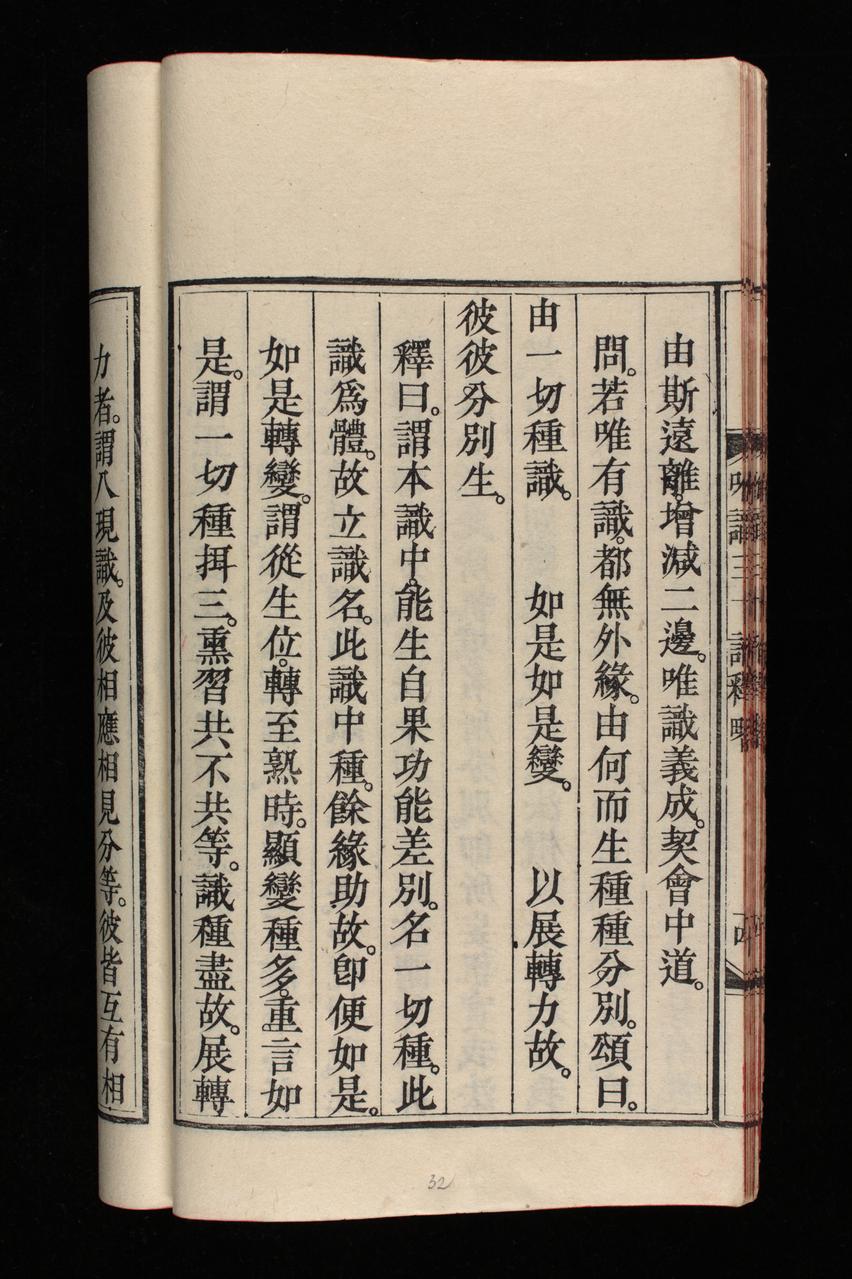 由斯遠離。增減二邊。唯識義成。契會中道。
問。若唯有識。都無外緣。由何而生種種分別。頌曰。
由一切種識。 如是如是變。 以展轉力故。
彼彼分別生。
釋曰。謂本識中。能生自果功能差別。名一切種。此
識爲體。故立識名。此識中種。餘緣助故。卽便如是。
如是轉變。謂從生位。轉至熟時。顯變種多。重言如
是。謂一切種。攝三。熏習共不共等。識種盡故。展轉
力者。謂八現識。及彼相應相見分等。彼皆互有相
32